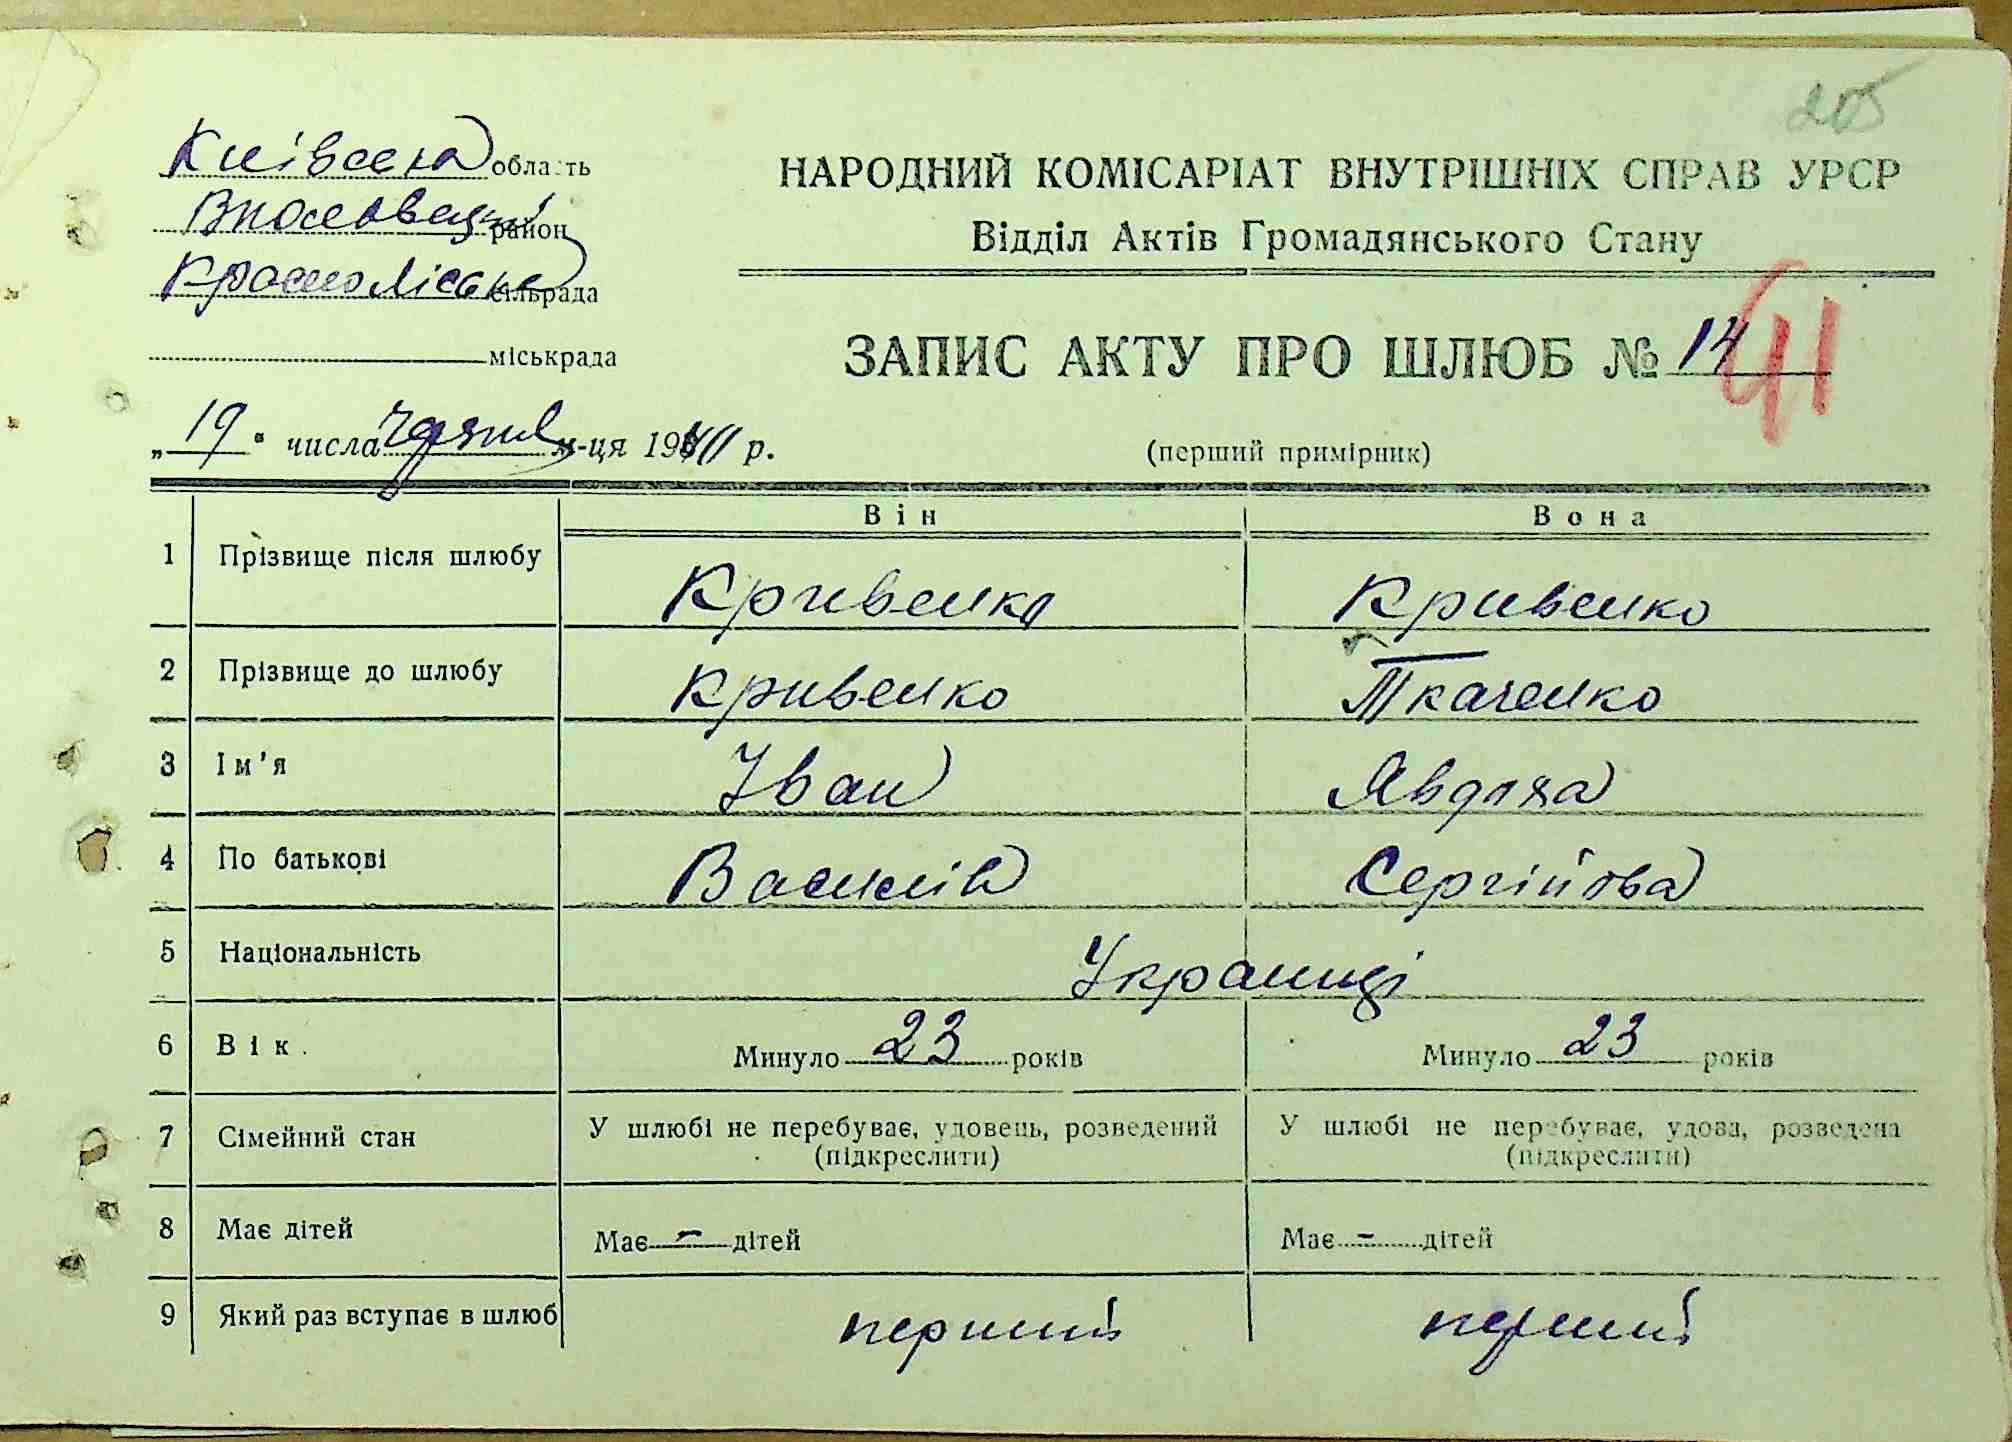 205
Київська область
НАРОДНИЙ КОМІСАРІАТ ВНУТРІШНІХ СПРАВ УРСР
район
Відділ Актів Громадянського Стану
Красноліська сільрада
міськрада
ЗАПИС АКТУ ПРО ШЛЮБ № 14
41
„19" числа червня м-ця 1941 р.
(перший примірник)
Він Вона
1 Прізвище після шлюбу Кривенко Кривенко
2 Прізвище до шлюбу Кривенко Ткаченко
3 Ім'я Іван Явдоха
4 По батькові Василів Сергійова
5 Національність Українці
6 Вік. Минуло 23 років Минуло 23 років
7 Сімейний стан У шлюбі не перебуває, удовець, розведений У шлюбі не перебуває, удова, розведена
(підкреслити) (підкреслити)
8 Має дітей Має - дітей Має - дітей
9 Який раз вступає в шлюб перший перший